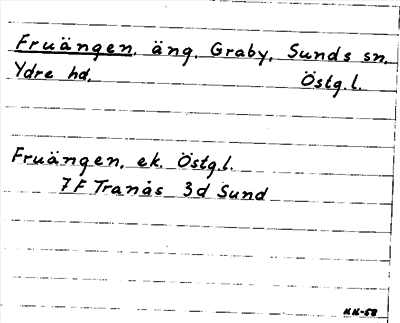 Fruängen, äng, Graby, Sunds sn,
Ydre hd, Östg.l.
Fruängen, ek. Östg.l.
7F Tranås 3d Sund
KK-58